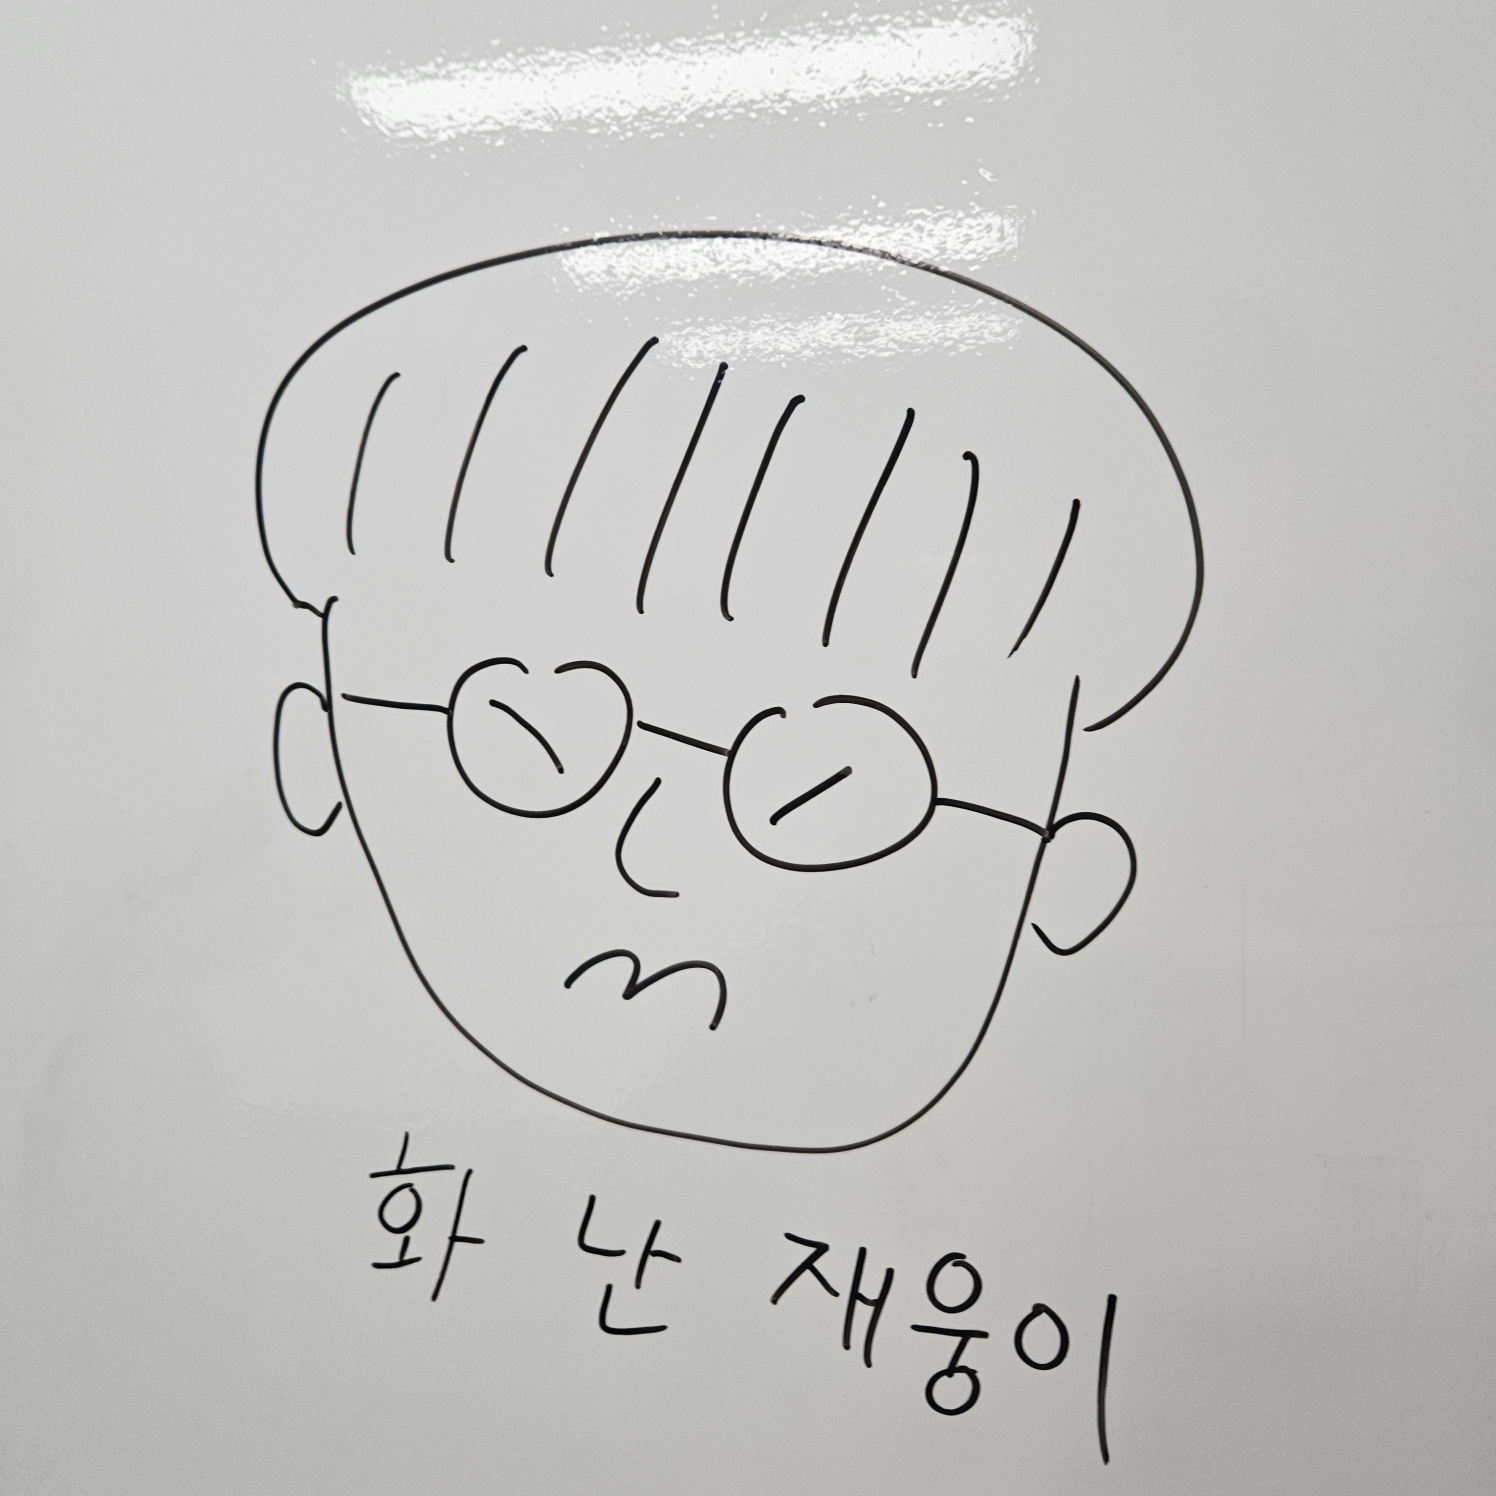 화 난 재웅이